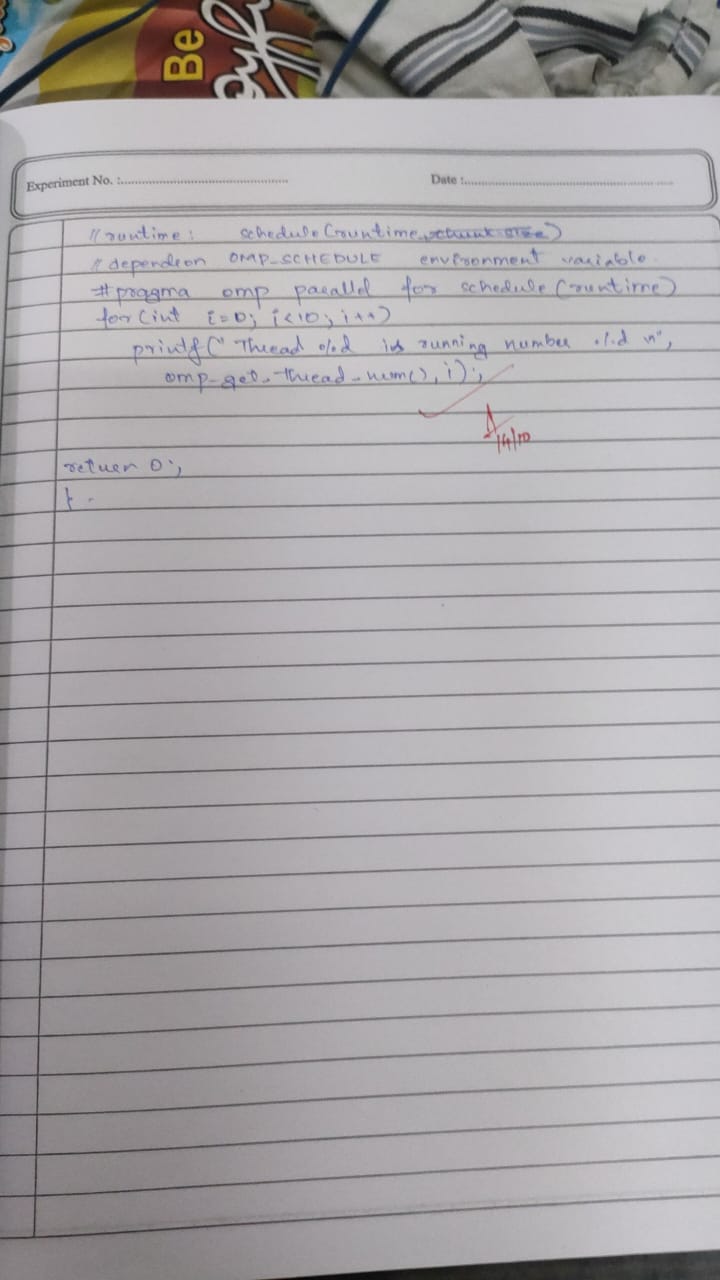 Be
Experiment No. :
Date :
// runtime : schedule (runtime, chunk-size)
// depends on OMP_SCHEDULE environment variable.
#pragma omp parallel for schedule (runtime)
for (int i=0; i<10; i++)
printf (" Thread %d is running number %d \n",
omp_get_thread_num(), i);
14/10
return 0;
}.